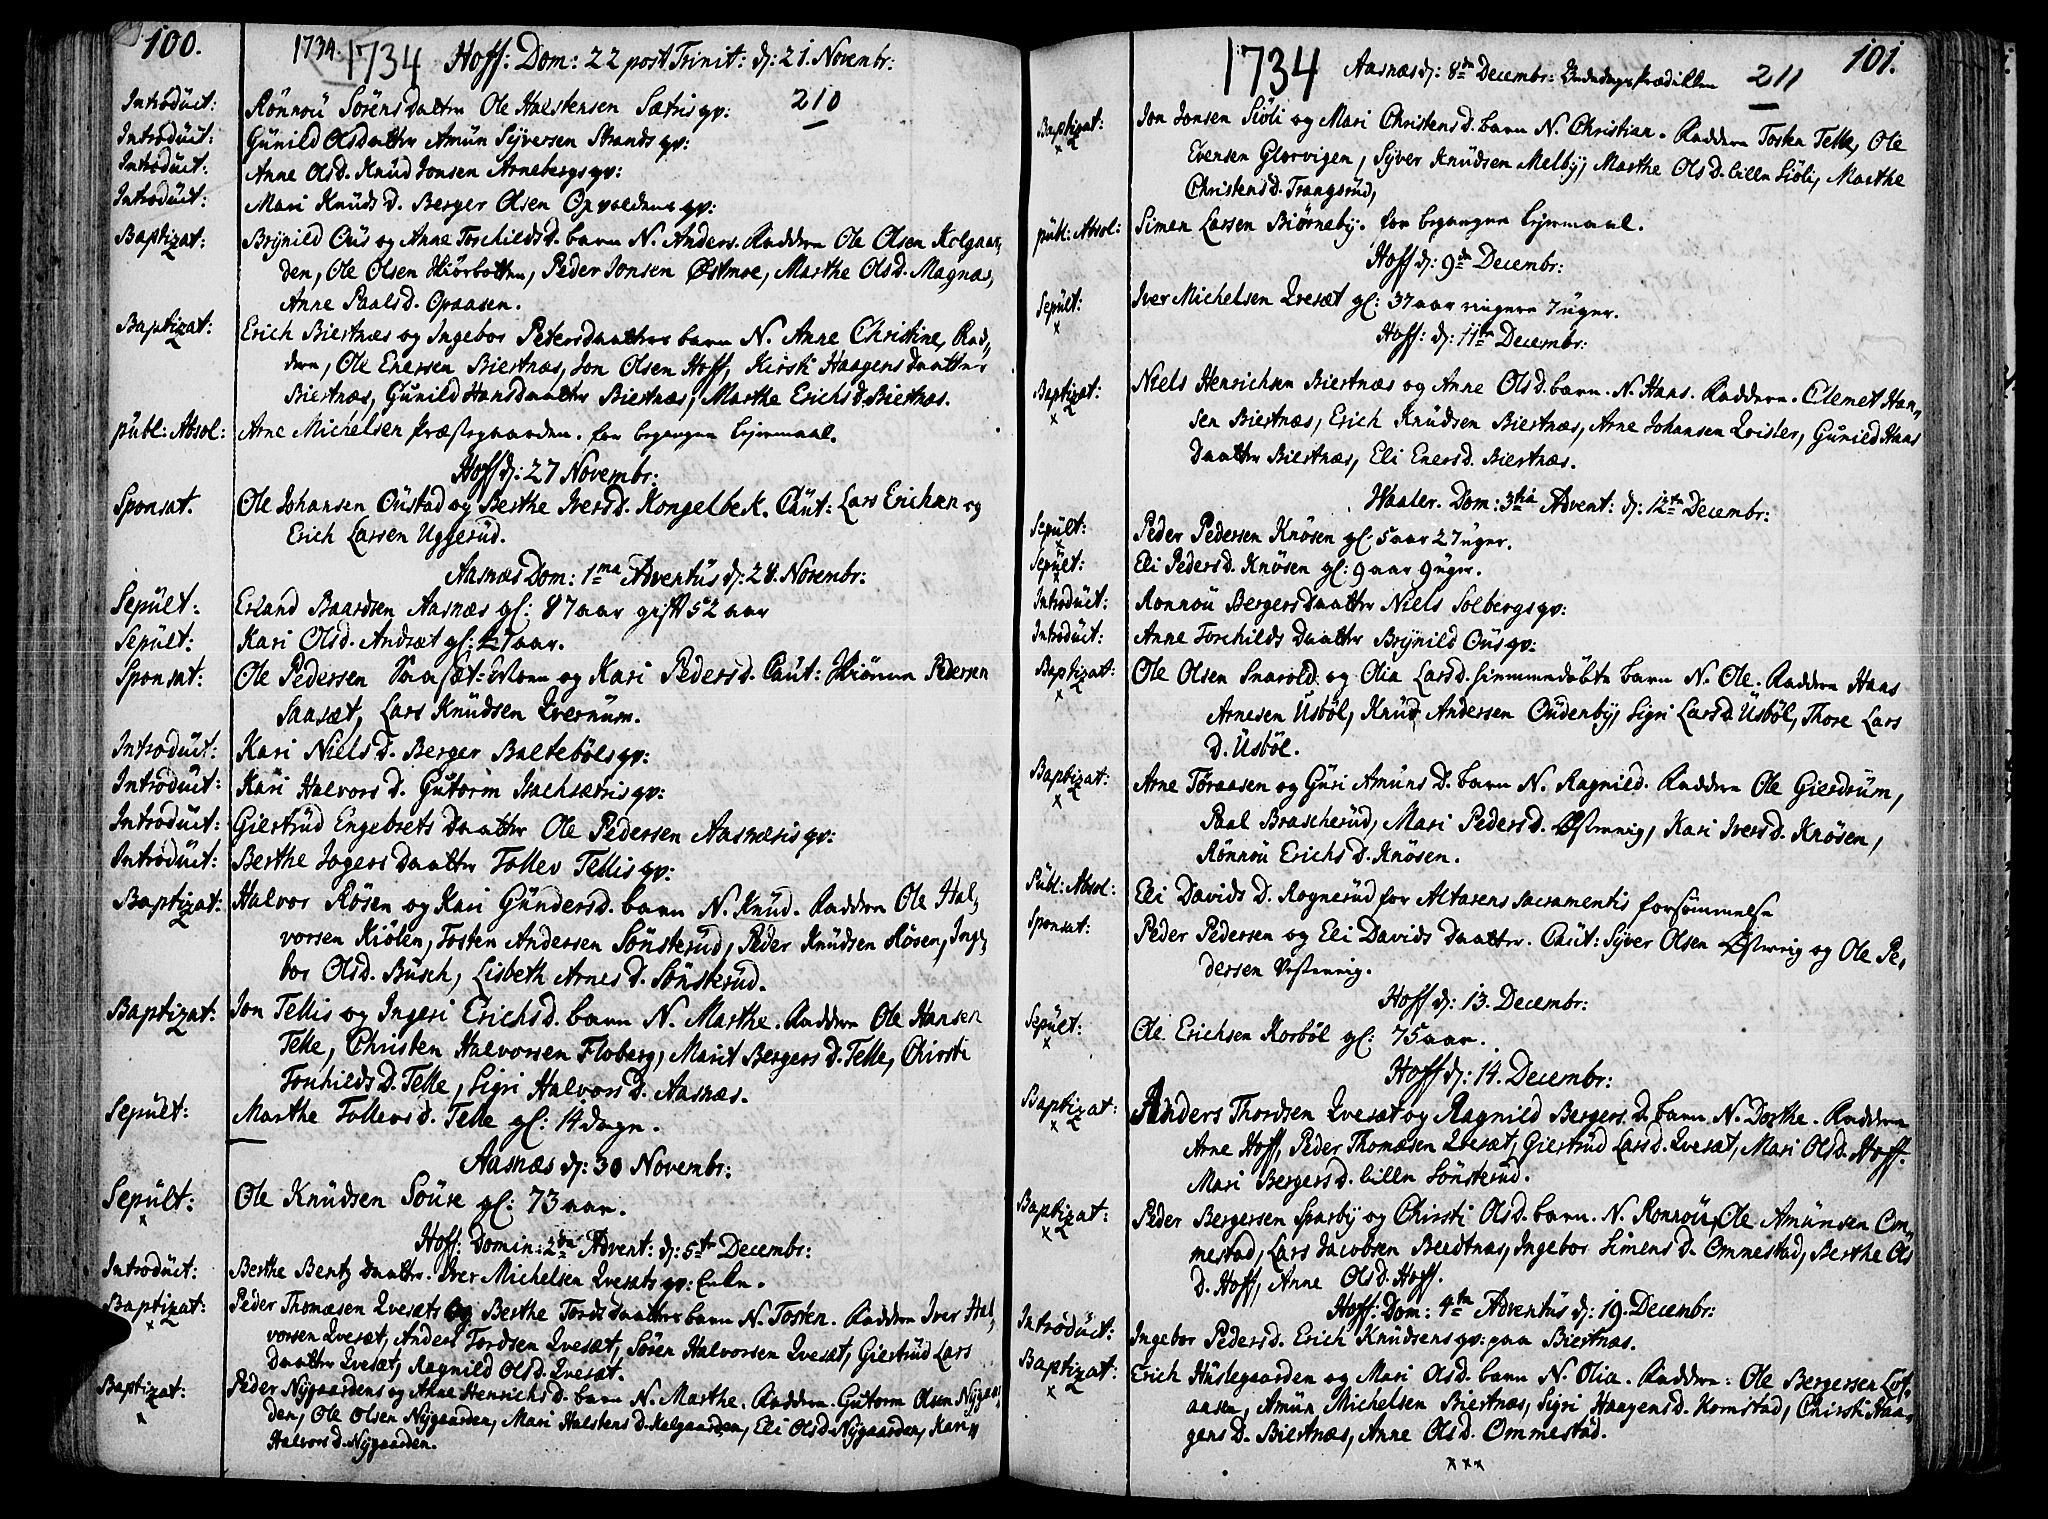 100. 1734. 1734 Hoff: Dom: 22 post Trinit: d: 21. Novembr:
210
Introduct: Rönnou Sörens daatter Ole Halstensen Sætris qv:
Introduct: Gunild Olsdaatter Amun Syversen Strands qv:
Introduct: Anne Olsd. Knud Jonsen Arnebergs qv:
Introduct: Mari Knuds d. Berger Olsen Opsetens qv:
Baptizat: Brynild Ous og Anne Torchildsd. barn N. Anders. Faddere Ole Olsen Kolgaar,
den, Ole Olsen Kiörbotten, Peder Jonsen Østmoe, Marthe Olsd. Magnæs,
Anne Paalsd. Opaasen.
Baptizat: Erich Biertnæs og Ingebor Petersdaatters barn N. Anne Christine, Fad,,
dere, Ole Enersen Biertnæs, Jon Olsen Hoff, Kirsti Haagens daatter
Biertnæs, Gunild Hansdaatter Biertnæs, Marthe Erichsd. Biertnæs.
publ: Absol: Arne Michelsen Præstegaarden. for begangen lejermaal.
Hoff d: 27 Novembr:
Sponsat. Ole Johansen Oustad og Berthe Iversd. Kongelbek. Caut: Lars Erichsen og
Erich Larsen Uggerud.
Aasnæs Dom: 1ma Adventus d: 28. Novembr:
Sepult: Erland Baardsen Aasnæs gl: 87 aar gift 52 aar
Sepult: Kari Olsd. Andræt gl: 27 aar.
Sponsat: Ole Pedersen Saasæt-Moen og Kari Pedersd. Caut: Kiönne Pedersen
Saasæt, Lars Knudsen Qvernum.
Introduct: Kari Nielsd. Berger Balteböls qv:
Introduct: Kari Halvorsd. Gutorm Nachsætris qv:
Introduct: Giertrud Engebrets daatter Ole Pedersen Aasnæsis qv:
Introduct: Berthe Jogers daatter Tollev Tellis qv:
Baptizat: Halvor Rösen og Kari Gundersd. barn N. Knud. Faddere Ole Hal,
vorsen Kiölen, Tosten Andersen Sönsterud, Peder Knudsen Rösen, Inge,
bor Olsd. Busch, Lisbeth Arnesd. Sönsterud.
Baptizat: Jon Tellis og Ingeri Erichsd. barn N. Marthe. Faddere Ole Hansen
Telle, Christen Halvorsen Floberg, Marit Bergersd. Telle, Chirsti
Torchildsd. Telle, Sigri Halvorsd. Aasnæs.
Sepult: Marthe Tollevsd. Telle gl: 14 dage.
Aasnæs d: 30 Novembr:
Sepult: Ole Knudsen Soure gl: 73 aar.
Hoff: Domin: 2da Advent: d: 5te Decembr:
Introduct: Berthe Bentz daatter. Iver Michelsen Qvesæts qv: Enke.
Baptizat: Peder Thomæsen Qvesæts og Berthe Tords daatters barn N. Tosten. Faddere Iver Hal,
vorsen Qvesæt, Anders Tordsen Qvesæt, Sören Halvorsen Qvesæt, Giertrud Lars
daatter Qvesæt, Ragnild Olsd. Qvesæt.
Baptizat: Peder Nygaardens og Anne Henrichsd. barn N. Marthe. Faddere. Gutorm Olsen Nygaar,
den, Ole Olsen Nygaarden, Mari Halstensd. Kolgaarden, Eli Olsd. Nygaarden, Kari
Halvorsd. Nygaarden.
1734 Aasnæs d: 8de Decembr: 211 101.
Baptizat: Jon Jonsen Siöli og Mari Christensd. barn N. Christian. Faddere Tosten Telle, Ole
Evensen Glorvigen, Syver Knudsen Melby, Marthe Olsd. lille Siöli, Marthe
Christensd. Trangsrud,
publ: Absol: Simen Larsen Biörneby. for begangen lejermaal.
Hoff d: 9de Decembr:
Sepult: Iver Michelsen Qvesæt gl: 37 aar ringere 7 uger.
Hoff: d: 11te Decembr:
Baptizat: Niels Henrichsen Biertnæs og Anne Olsd. barn. N. Hans. Faddere. Clemet Han,
sen Biertnæs, Erich Knudsen Biertnæs, Arne Johansen Qvisler, Gunild Hans
daatter Biertnæs, Eli Enersd. Biertnæs.
Waaler. Dom: 3tia Advent: d: 12te Decembr:
Sepult: Peder Pedersen Knösen gl: 5 aar 27 uger.
Sepult: Eli Pedersd. Knösen gl: 9 aar 9 uger.
Introduct: Ronnou Bergers daatter Niels Solbergs qv:
Introduct: Anne Torchilds daatter Brynild Ous qv:
Baptizat: Ole Olsen Snarold og Olia Larsd. hiemmedöbte barn N. Ole. Faddere Hans
Arnesen Usböl, Knud Andersen Oudenby, Sigri Larsd. Usböl, Thore Lars
d. Usböl.
Baptizat: Arne Toraasen og Guri Amunsd. barn N. Ragnild. Faddere Ole Gierdrum,
Paal Brascherud, Mari Pedersd. Østernig, Kari Iversd. Knösen,
Rönnou Erichsd. Knösen.
Publ: Absol: Eli Davidsd. Rognerud for Altarens Sacramentis forsömmelse
Sponsat: Peder Pedersen og Eli Davids daatter. Caut: Syver Olsen Østernig og Ole Pe,
dersen Vesternig.
Hoff d: 13. Decembr:
Sepult: Ole Erichsen Korböl gl: 75 aar.
Hoff d: 14. Decembr:
Baptizat: Anders Thordsen Qvesæt og Ragnild Bergersd. barn N. Dorthe. Faddere
Arne Hoff, Peder Thomæsen Qvesæt, Giertrud Larsd. Qvesæt, Mari Olsd. Hoff.
Mari Bergersd. lille Sönsterud.
Baptizat: Peder Bergersen Sparby og Chirsti Olsd. barn. N. Ronnou, Ole Amunsen Om,
mestad, Lars Jacobsen Berdtnæs, Ingebor Simensd. Ommestad, Berthe Ols
d. Hoff, Anne Olsd. Hoff.
Hoff: Dom: 4te Adventus d: 19. Decembr:
Introduct: Ingebor Pedersd. Erich Knudsens qv: paa Biertnæs.
Baptizat: Erich Huslegaarden og Mari Olsd. barn N. Olia. Faddere: Ole Bergersen Lof,
aasen, Amun Michelsen Biertnæs, Sigri Haagensd. Kornstad, Chirsti Haa,
gensd. Biertnæs, Anne Olsd. Ommestad.
x x x